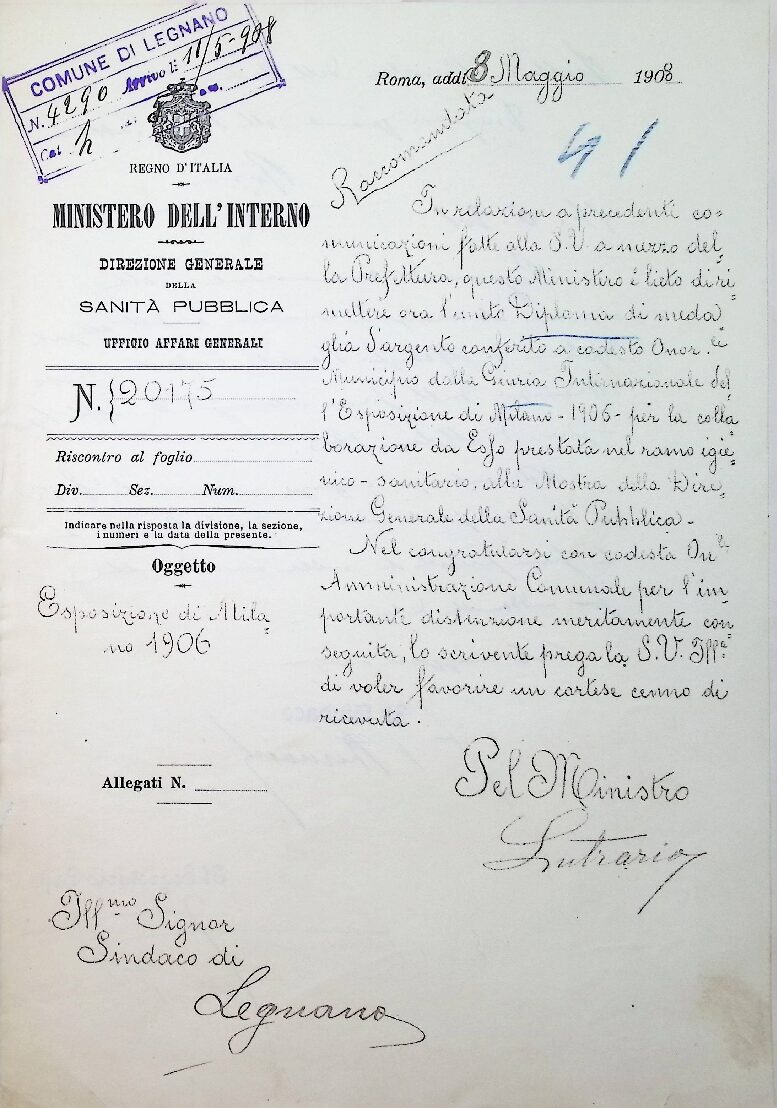 COMUNE DI LEGNANO
N. 4290 Arrivo li 11/5-908
Cat h
Roma, addì 8 Maggio 1908
Raccomandata
41
REGNO D'ITALIA
MINISTERO DELL'INTERNO
DIREZIONE GENERALE
DELLA
SANITÀ PUBBLICA
UFFICIO AFFARI GENERALI
N. 20175
Riscontro al foglio
Div. Sez. Num.
Indicare nella risposta la divisione, la sezione,
i numeri e la data della presente.
Oggetto
Esposizione di Mila=
no 1906
Allegati N.
In relazione a precedenti co=
municazioni fatte alla S.V. a mezzo del=
la Prefettura, questo Ministero è lieto di ri=
mettere ora l'unito Diploma di meda=
glia d'argento conferito a codesto Onor.le
Municipio dalla Giuria Internazionale del=
l'Esposizione di Milano - 1906 - per la colla=
borazione da Esso prestata nel ramo igie=
nico-sanitario, alla Mostra della Dire=
zione Generale della Sanità Pubblica.-
Nel congratularsi con codesta On.le
Amministrazione Comunale per l'im=
portante distinzione meritamente con=
seguita, lo scrivente prega la S.V. Ill.a
di voler favorire un cortese cenno di
ricevuta.
Pel Ministro
Lutrario
Ill.mo Signor
Sindaco di
Legnano